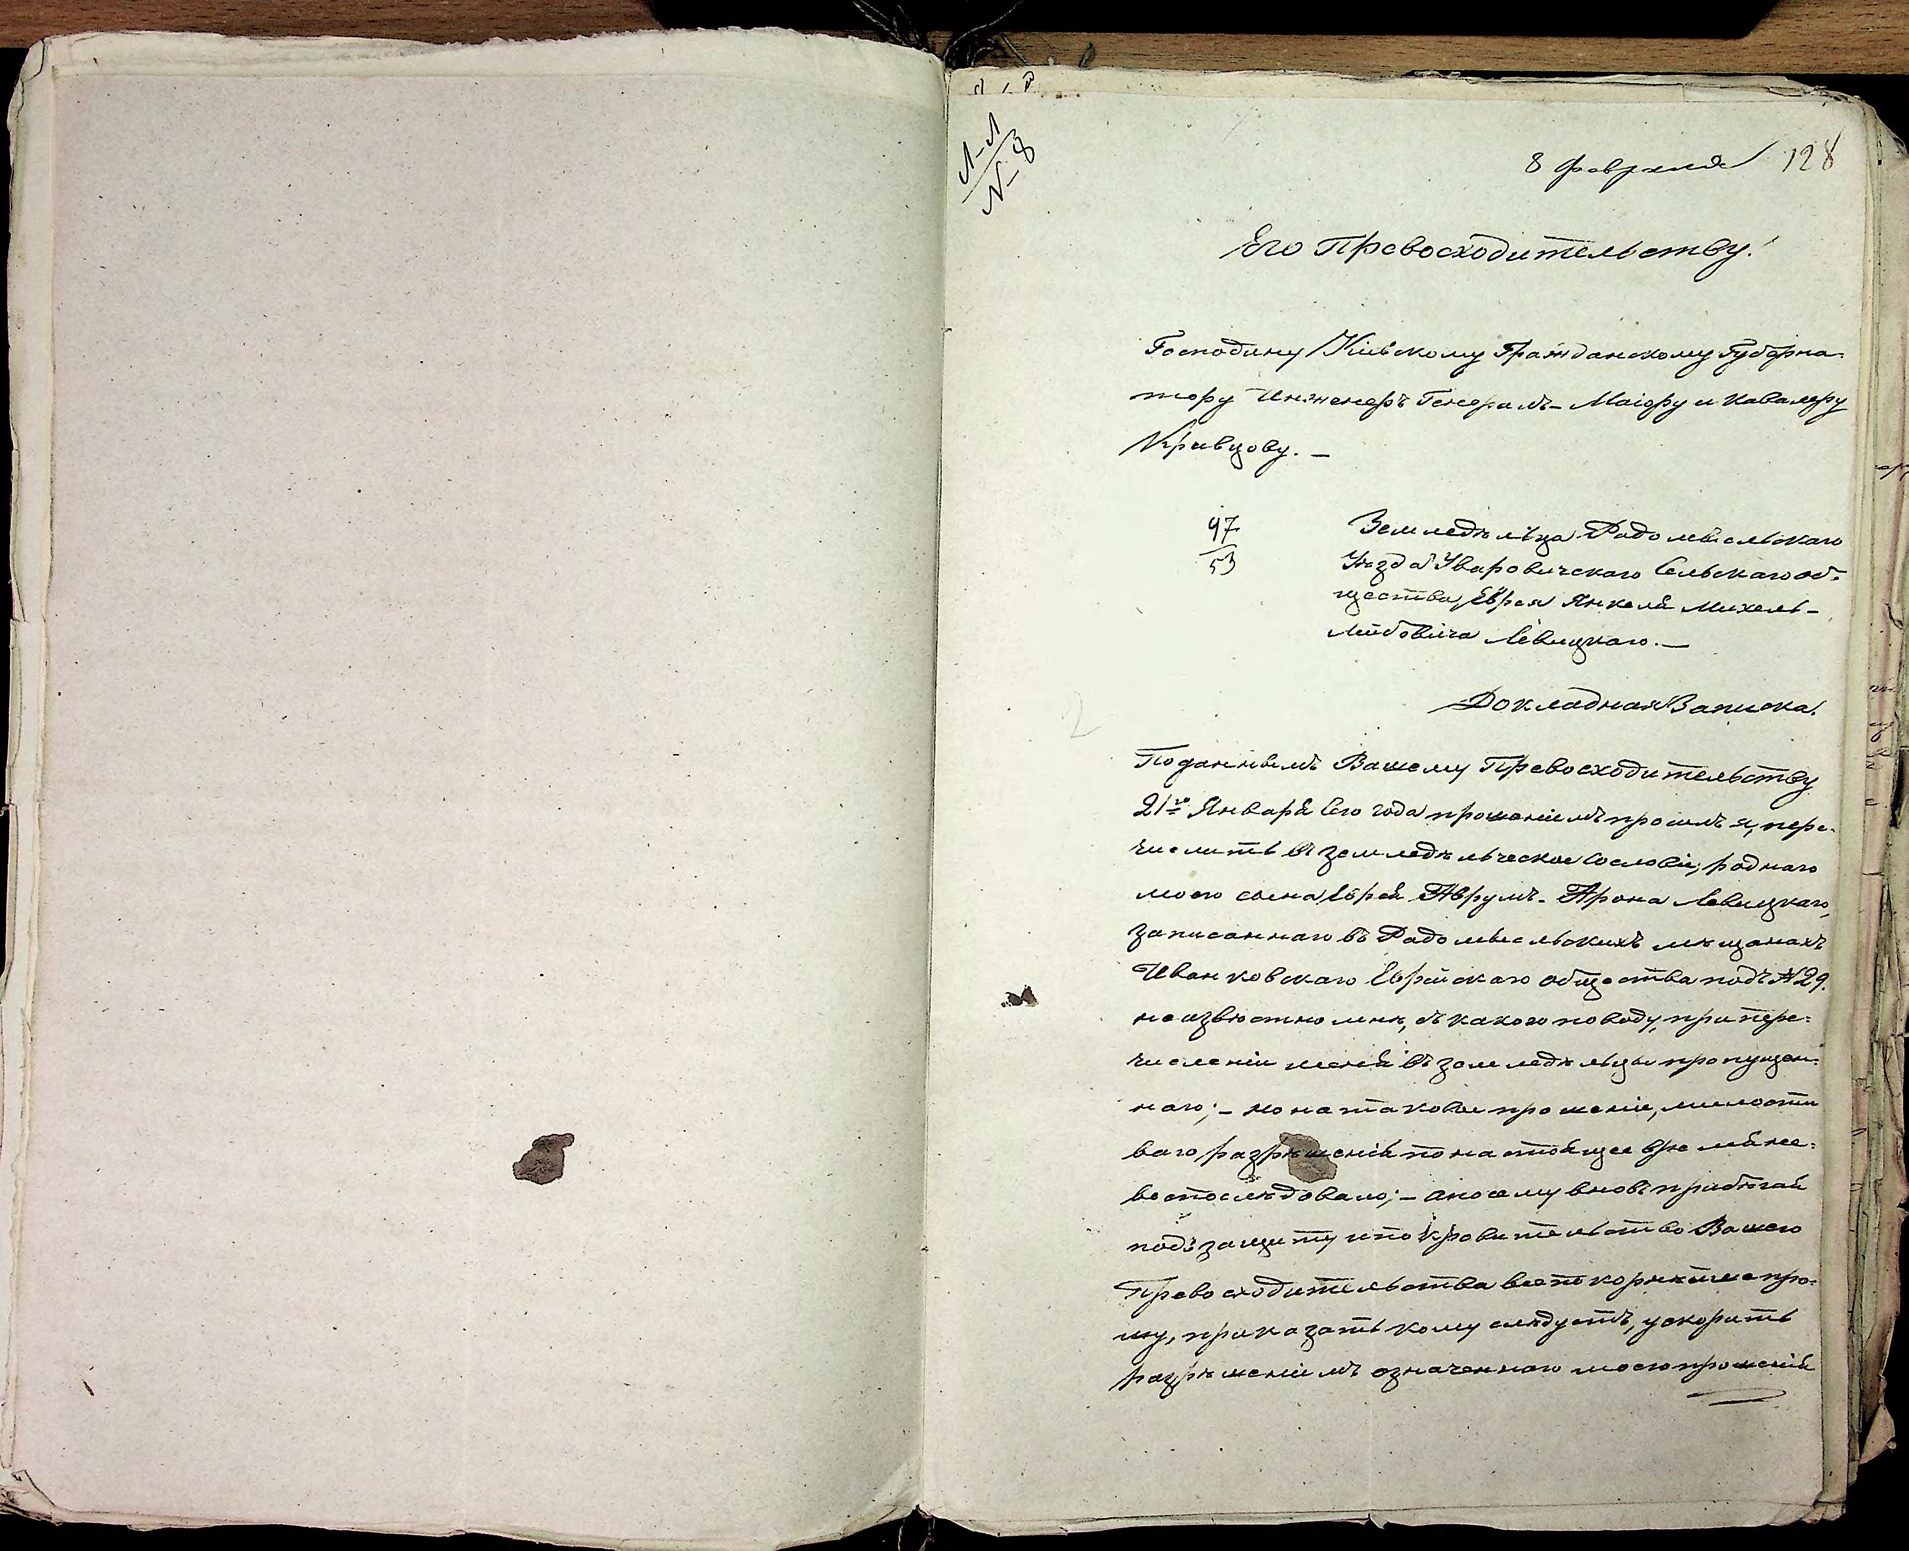 Л-Л
N-8
8 февраля 128
Его Превосходительству!
Господину Кіевскому Гражданскому Губерна-
тору Инженеръ Генералъ-Маіору и Кавалеру
Кривцову. —
97
53
Земледѣльца Радомысльскаго
Уѣзда Уваровичскаго Сельскаго об-
щества, Еврея Янкеля Михель-
Лейбовича Левицкаго. —
Докладная Записка!
Поданнымъ Вашему Превосходительству
21го Января сего года прошеніемъ просилъ я, пере-
числить въ земледѣльческое сословіе, роднаго
моего сына Еврея Аврумъ-Арона Левицкаго,
записаннаго въ Радомысльскихъ мѣщанахъ
Иванковскаго Еврейскаго общества подъ № 29.
неизвѣстно мнѣ, съ какого поводу, при пере-
численіи меня въ земледѣльцы пропущен-
наго; — но на таковое прошеніе, милости
ваго разрѣшенія по настоящее время не-
воспослѣдовало; — а посему вновь прибѣгая
подъ защиту и покровительство Вашего
Превосходительства всепокорнѣйше про-
шу, приказать кому слѣдуетъ, ускорить
разрѣшеніемъ означеннаго моего прошенія